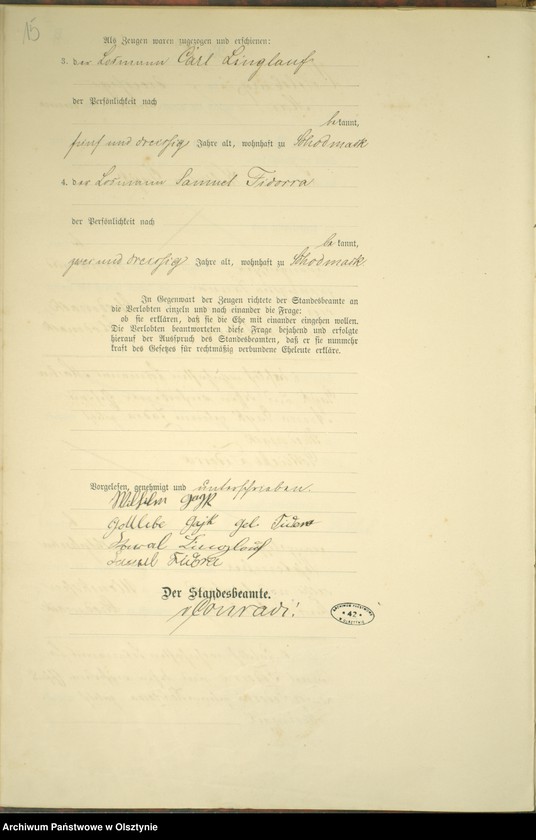 15
Als Zeugen waren zugezogen und erschienen:
3. der Losmann Carl Linglauf
der Persönlichkeit nach
bekannt,
fünf und dreißig Jahre alt, wohnhaft zu Schodmack
4. der Losmann Samuel Fidorra
der Persönlichkeit nach
bekannt,
zwei und dreißig Jahre alt, wohnhaft zu Schodmack
In Gegenwart der Zeugen richtete der Standesbeamte an
die Verlobten einzeln und nach einander die Frage:
ob sie erklären, daß sie die Ehe mit einander eingehen wollen.
Die Verlobten beantworteten diese Frage bejahend und erfolgte
hierauf der Ausspruch des Standesbeamten, daß er sie nunmehr
kraft des Gesetzes für rechtmäßig verbundene Eheleute erkläre.
Vorgelesen, genehmigt und unterschrieben.
Wilhelm Gayk
Gottlibe Gajk geb.
Linglauf
Fidorra
Der Standesbeamte.
vConradi.
ARCHIWUM PAŃSTWOWE
42
W OLSZTYNIE
Archiwum Państwowe w Olsztynie